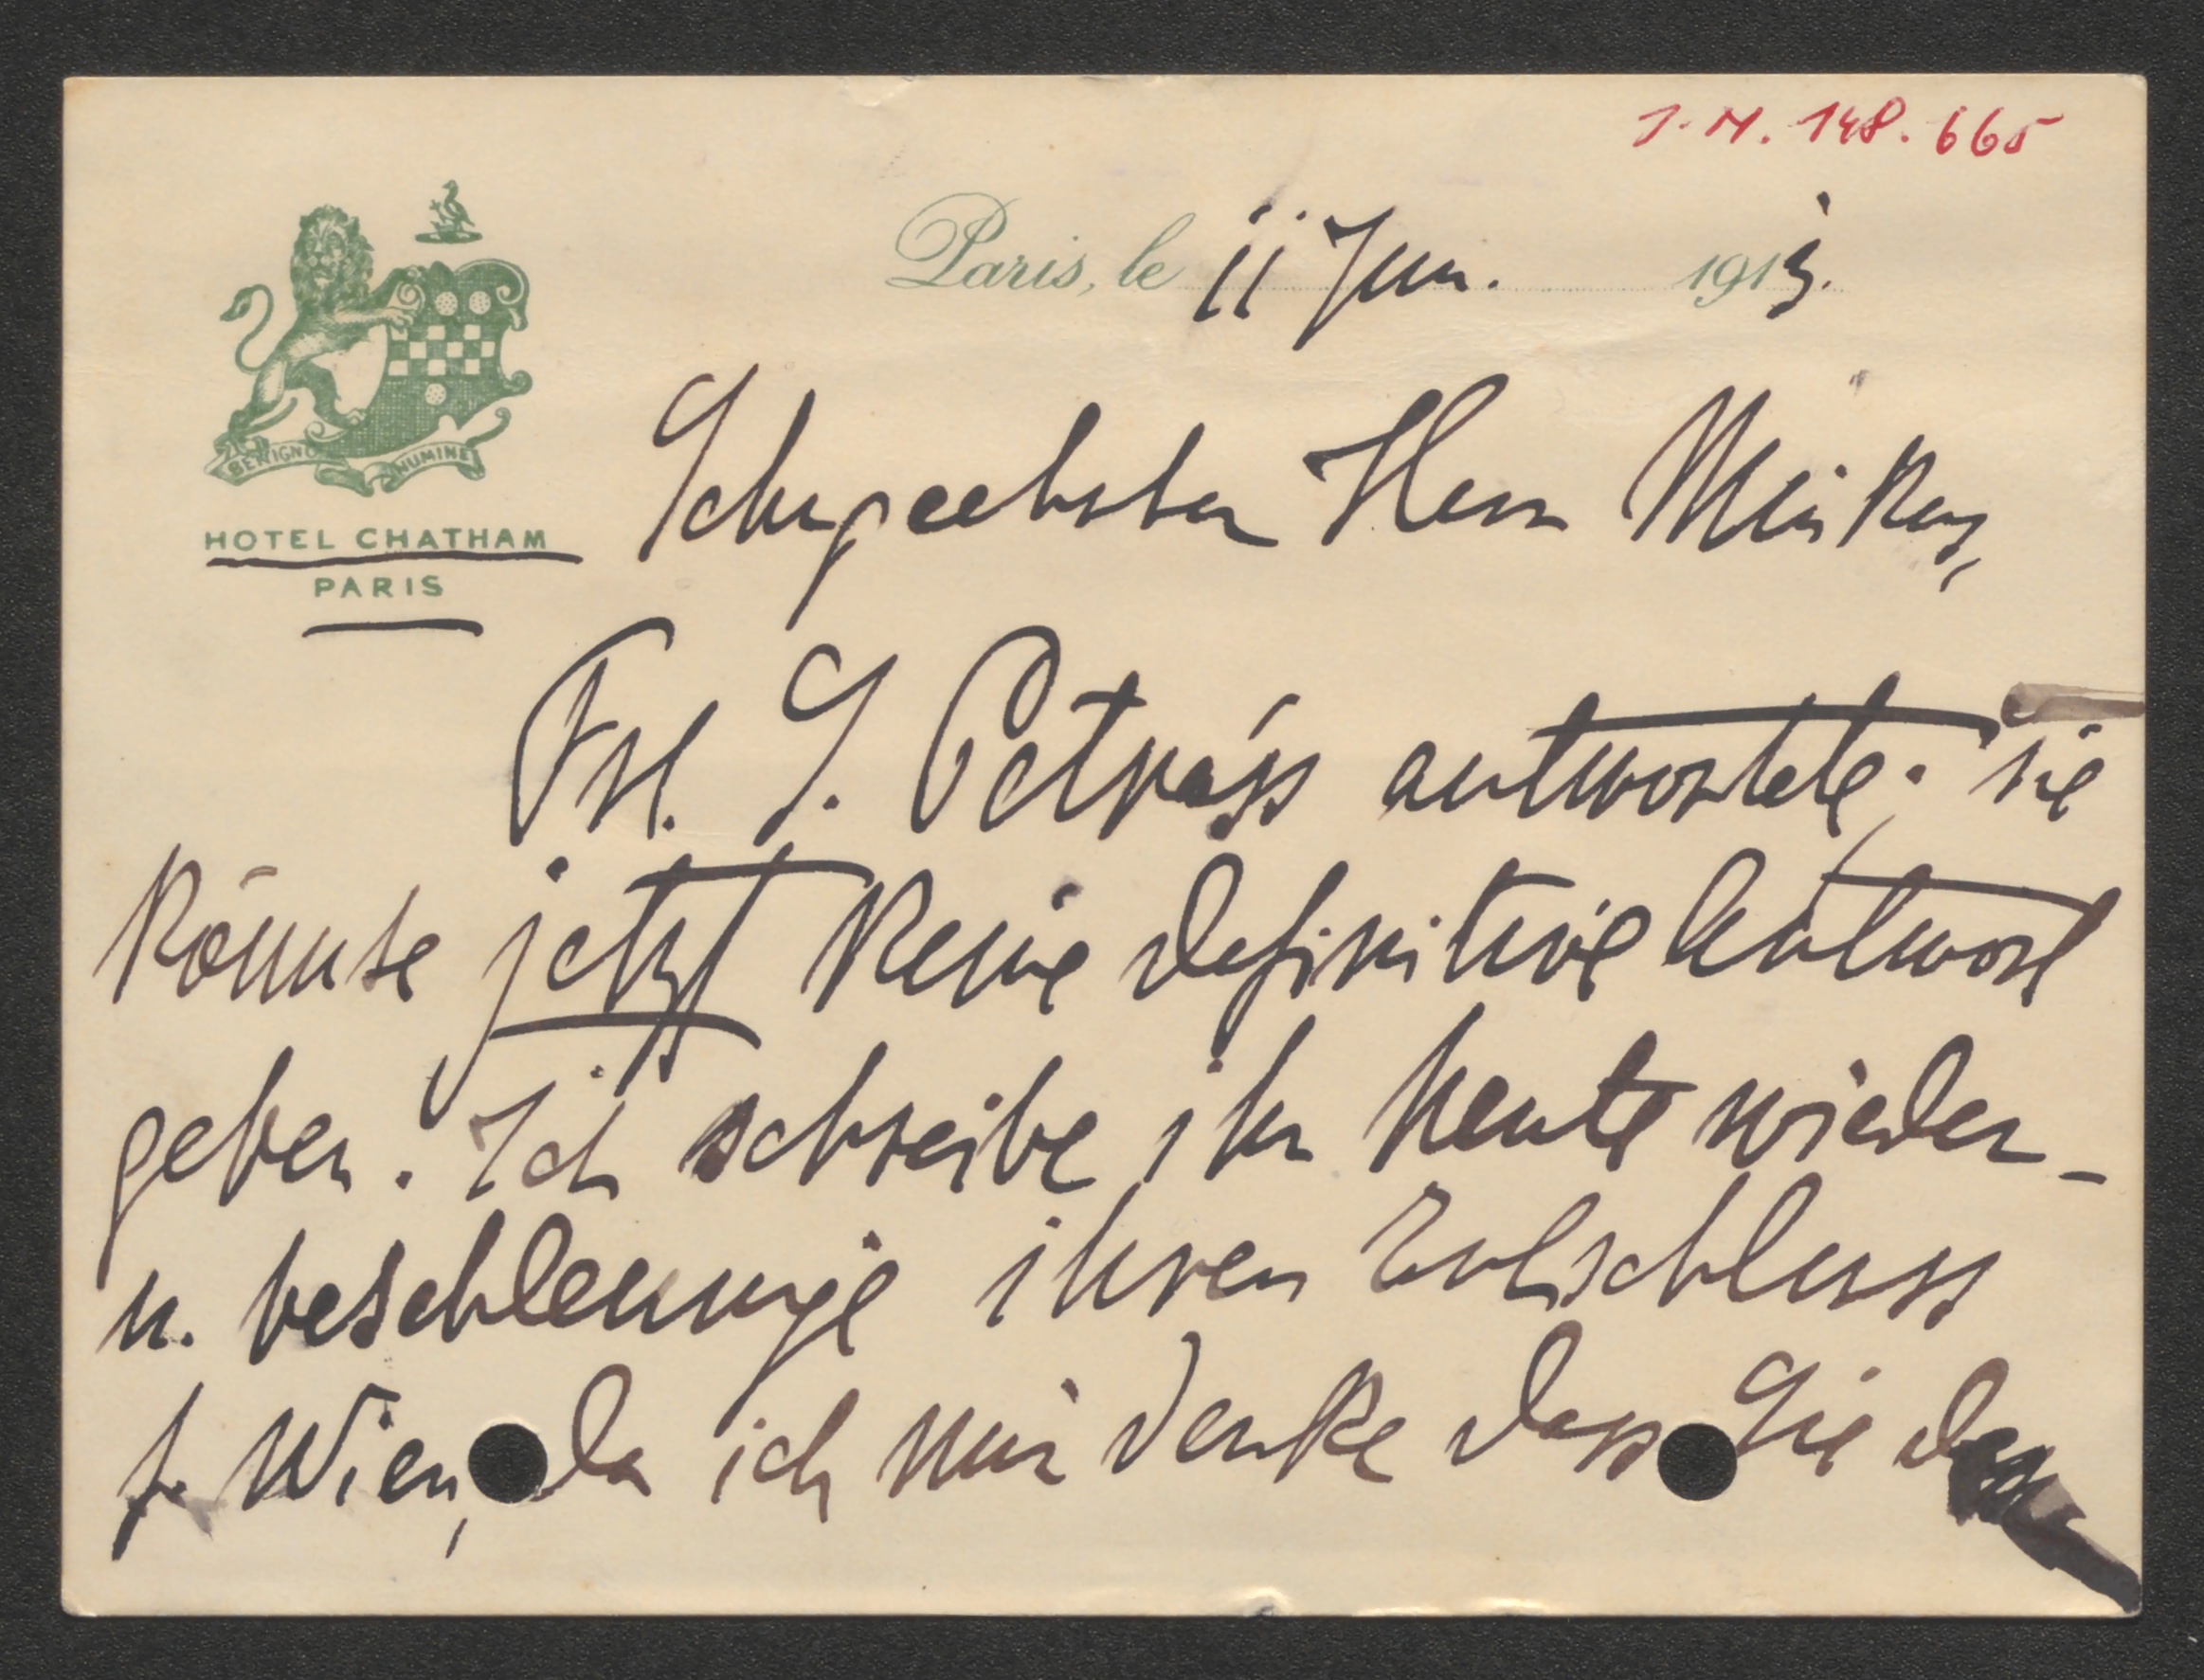 J. N. 148.665
Paris, le 11 Jun. 1913.
BENIGNO NUMINE
HOTEL CHATHAM
PARIS
Sehrgeehrter Herr
Frl. S. Petráss antwortete, sie
könnte jetzt keine definitive Antwort
geben. Ich schreibe ihr heute wieder -
u. beschleunige ihren Entschluss
f. Wien, da ich mir denke dass Sie